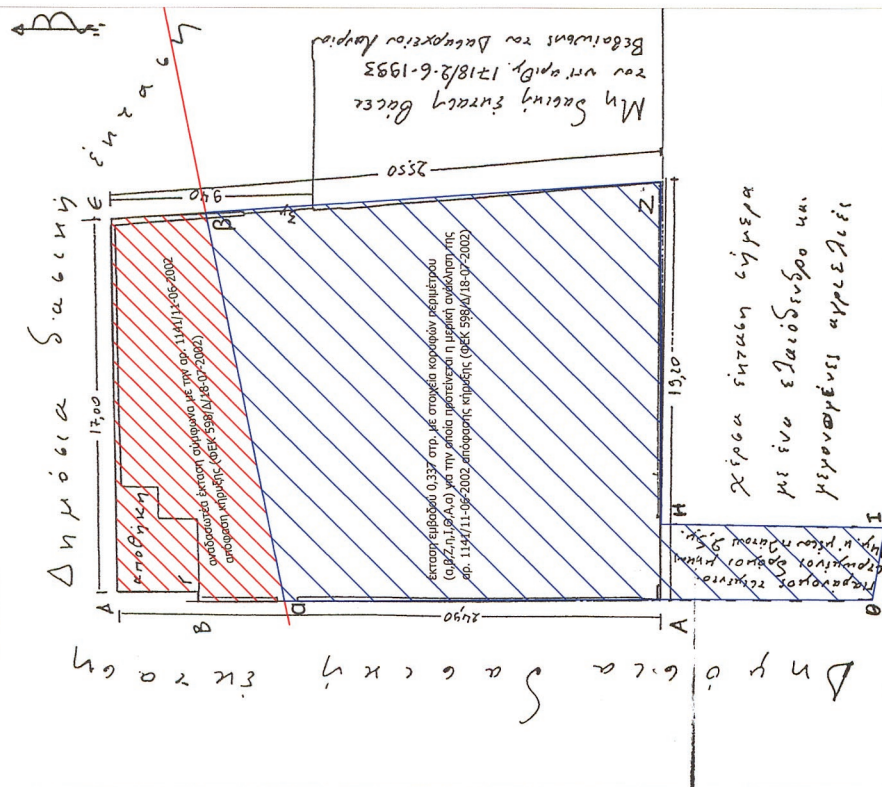 Δημόσια δασική έκταση
Μη δασική έκταση βάσει
του υπ' αριθμ. 1718/2-6-1993
Βεβαίωσης του Δασαρχείου Λαυρίου
Ε
17,00
Δ
9,40
25,50
αποθήκη
Γ
Β
αναδασωτέα έκταση σύμφωνα με την αρ. 1141/11-06-2002
απόφαση κήρυξης (ΦΕΚ 598/Δ/18-07-2002)
β
α
έκταση εμβαδού 0,337 στρ. με στοιχεία κορυφών περιμέτρου
(α,β,Ζ,η,Ι,Θ,Α,α) για την οποία προτείνεται η μερική ανάκληση της
αρ. 1141/11-06-2002 απόφασης κήρυξης (ΦΕΚ 598/Δ/18-07-2002)
24,90
Ζ
19,20
Α
Η
Θ
Ι
τσιμέντο
δρόμος μήκους
πλάτους 2,5μ.
χέρσα έκταση σήμερα
με ένα ελαιόδενδρο και
μεμονωμένες αγριελιές
Δημόσια δασική έκταση